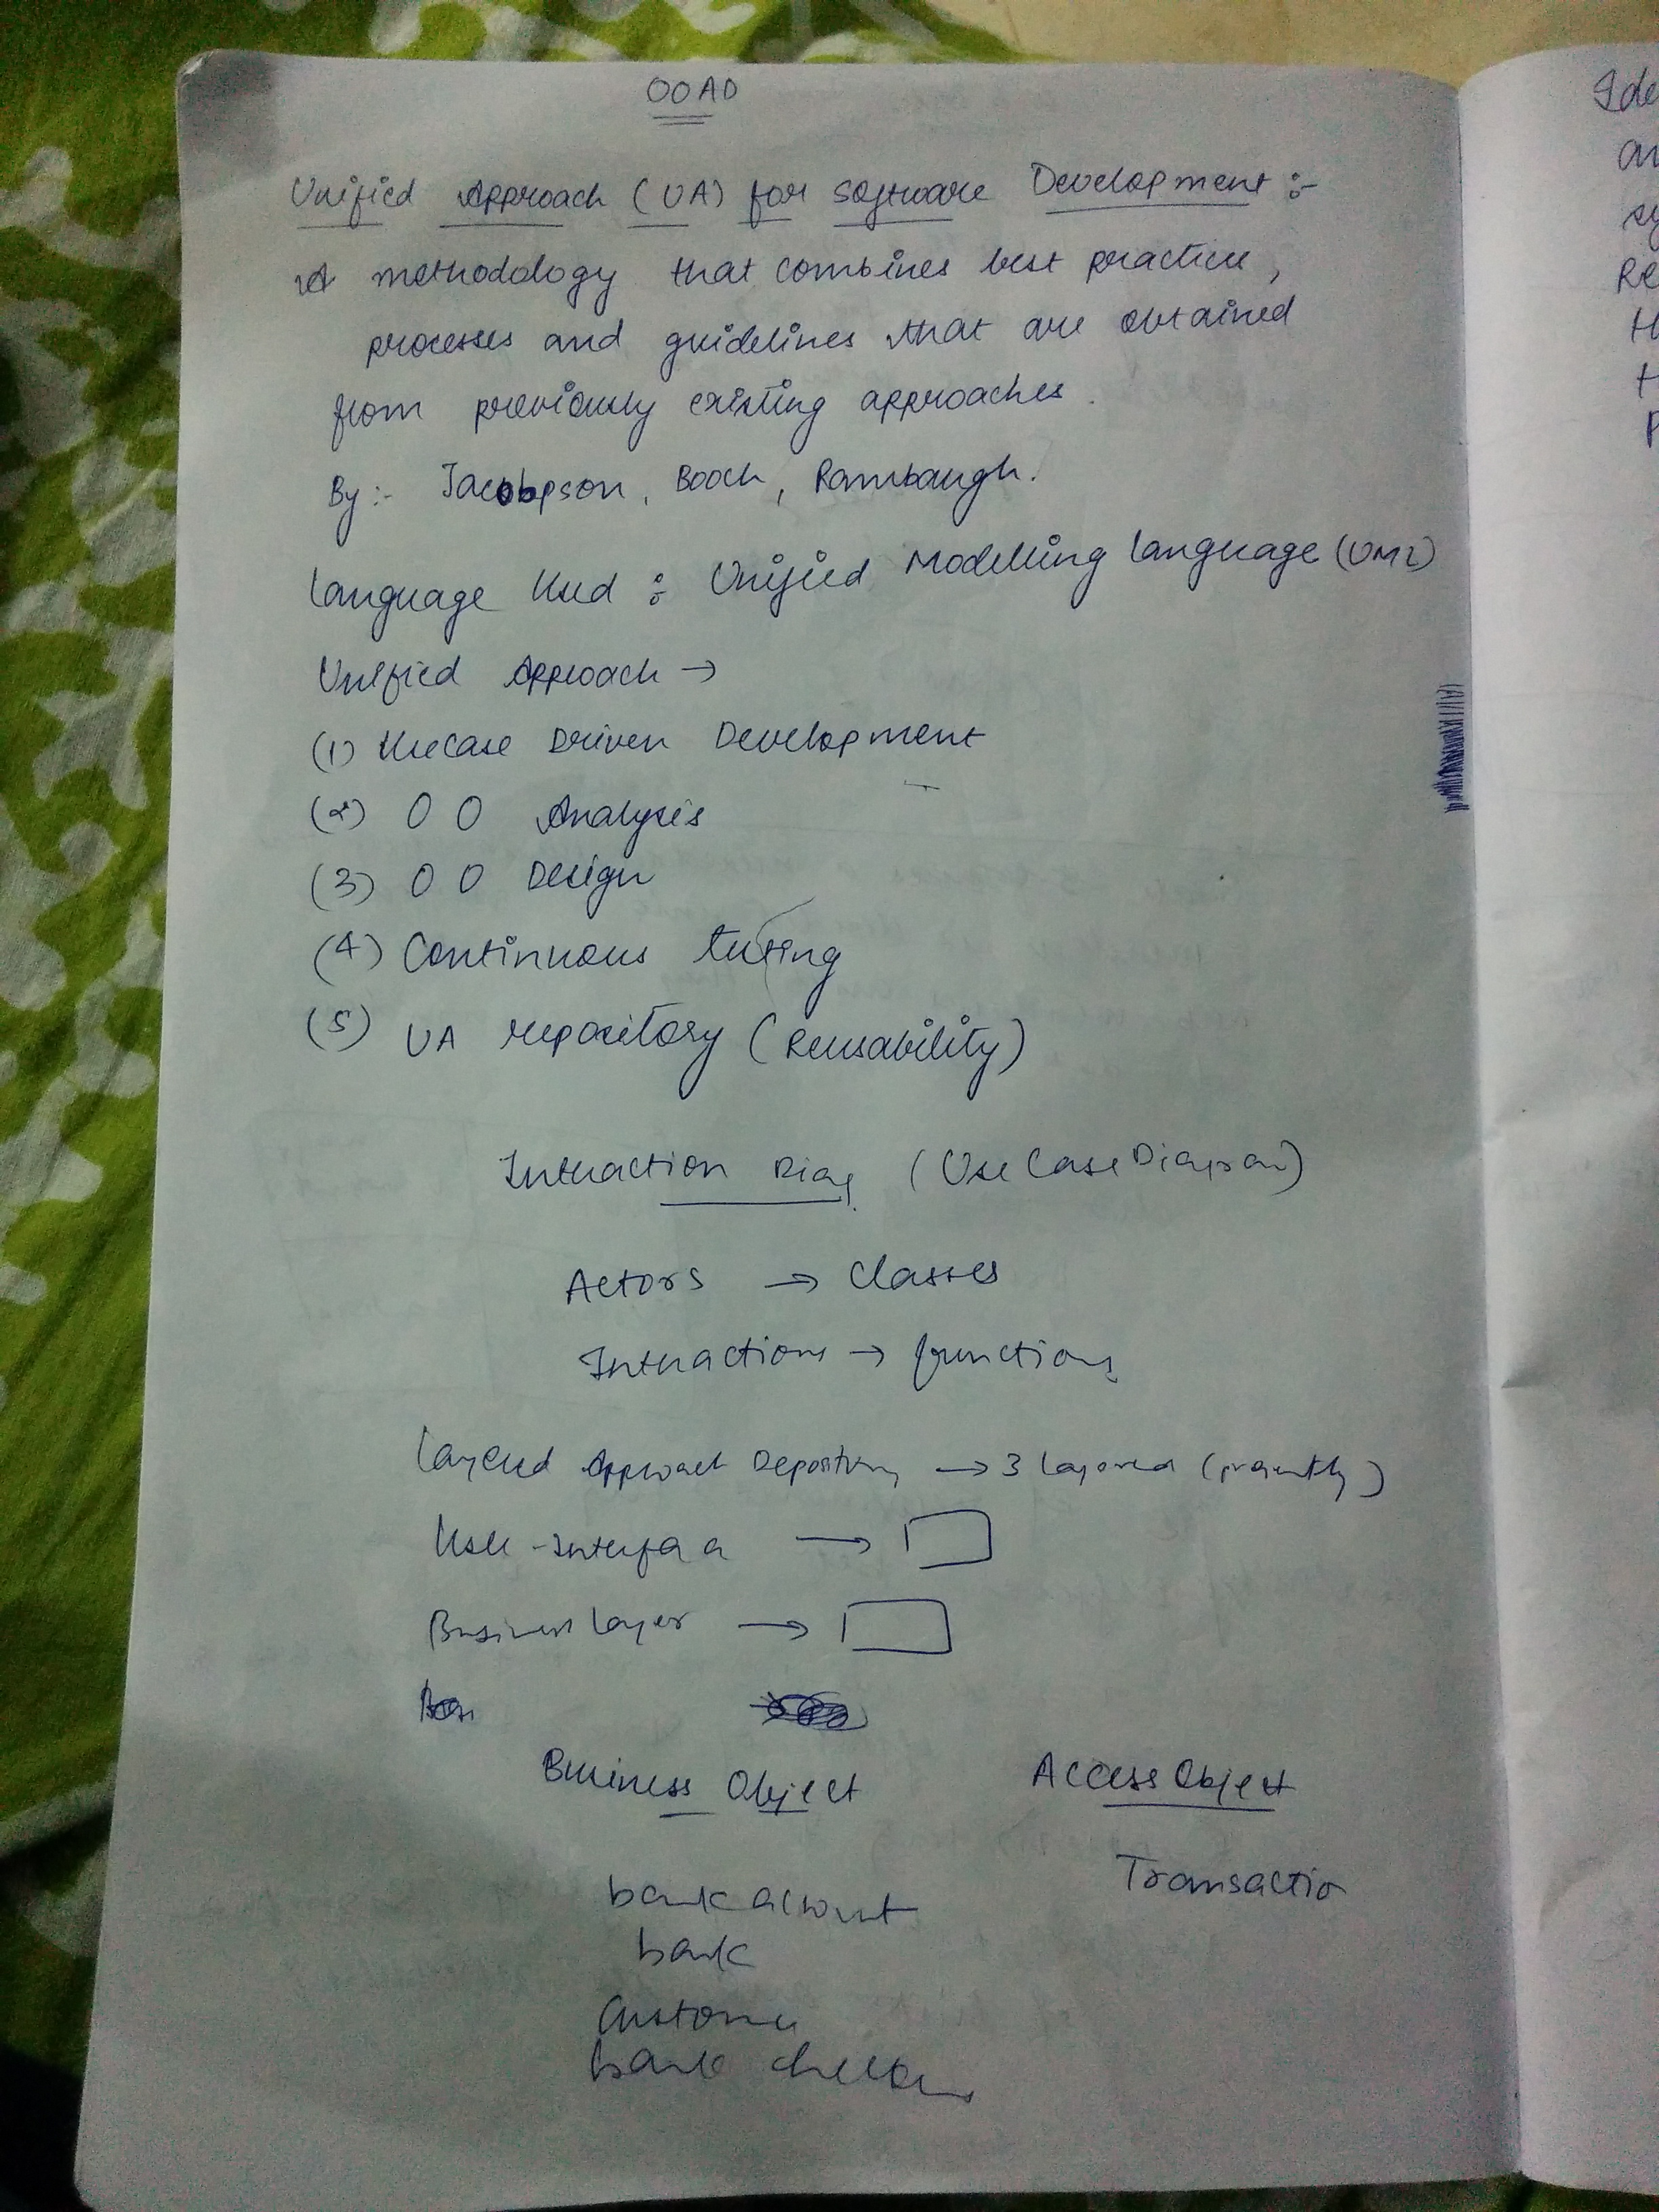 OOAD
Unified Approach (UA) for Software Development :-
A methodology that combines best practice,
processes and guidelines that are obtained
from previously existing approaches.
By :- Jacobpson, Booch, Rambaugh.
Language Used : Unified Modelling Language (UML)
Unified Approach →
(1) Usecase Driven Development
(2) O O Analysis
(3) O O Design
(4) Continuous testing
(5) UA repository (Reusability)
Interaction Diag (Use Case Diagram)
Actors → Classes
Interactions → functions
Layered Approach Depository → 3 layered (presently)
User-Interface →
Business Layer →
Business Object Access Object
bank account Transactio
bank
Customer
bank
Ide